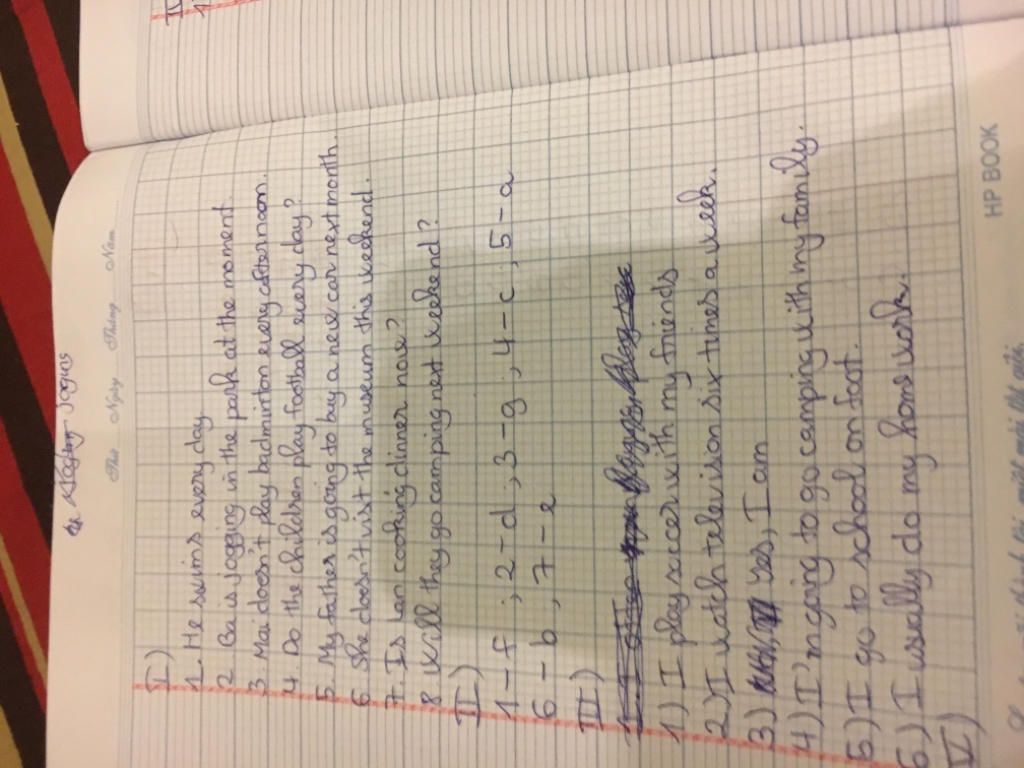 Jogging Joguis
Thứ Ngày Tháng Năm
I)
1. He swims every day
2. Ba is jogging in the park at the moment.
3. Mai doesn't play badminton every afternoon.
4. Do the children play football every day?
5. My father is going to buy a new car next month.
6. She doesn't visit the museum this weekend.
7. Is Lan cooking dinner now?
8 Will they go camping next weekend?
II)
1-f, 2-d, 3-g, 4-c, 5-a
6-b, 7-e
III)
1) I play soccer with my friends
2) I watch television six times a week.
3) Yes, I am
4) I'm going to go camping with my family.
5) I go to school on foot.
6) I usually do my homework.
V)
HP BOOK
IV
1